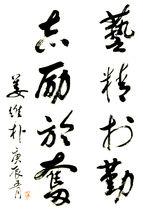 藝精於勤
志励於奮
姜維朴 庚辰